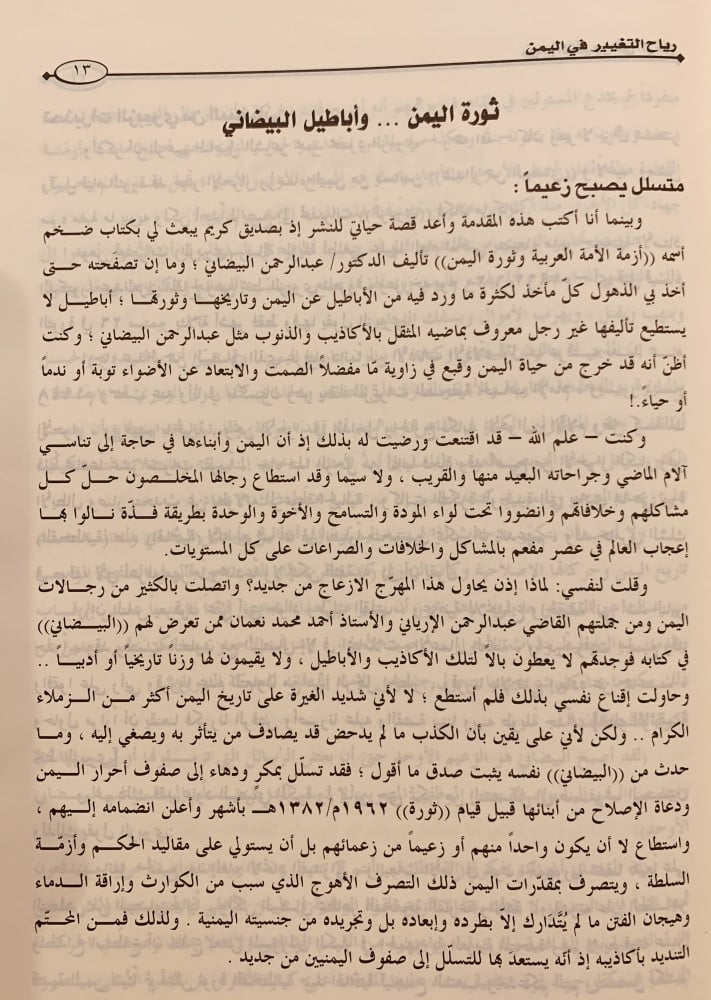 رياح التغيير في اليمن
١٣
ثورة اليمن ... وأباطيل البيضاني
متسلل يصبح زعيماً :
وبينما أنا أكتب هذه المقدمة وأعد قصة حياتي للنشر إذ بصديق كريم يبعث لي بكتاب ضخم
أسمه ((أزمة الأمة العربية وثورة اليمن)) تأليف الدكتور/ عبدالرحمن البيضاني ؛ وما إن تصفَحته حتى
أخذ بي الذهول كلّ مأخذ لكثرة ما ورد فيه من الأباطيل عن اليمن وتاريخها وثورتها ؛ أباطيل لا
يستطيع تأليفها غير رجل معروف بماضيه المثقل بالأكاذيب والذنوب مثل عبدالرحمن البيضاني ؛ وكنت
أظنّ أنه قد خرج من حياة اليمن وقبع في زاوية مّا مفضلاً الصمت والابتعاد عن الأضواء توبة أو ندماً
أو حياءً.!
وكنت – علم الله – قد اقتنعت ورضيت له بذلك إذ أن اليمن وأبناءها في حاجة إلى تناسي
آلام الماضي وجراحاته البعيد منها والقريب ، ولا سيما وقد استطاع رجالها المخلصون حلّ كل
مشاكلهم وخلافاتهم وانضووا تحت لواء المودة والتسامح والأخوة والوحدة بطريقة فذّة نالوا بها
إعجاب العالم في عصر مفعم بالمشاكل والخلافات والصراعات على كل المستويات.
وقلت لنفسي: لماذا إذن يحاول هذا المهرّج الازعاج من جديد؟ واتصلت بالكثير من رجالات
اليمن ومن جملتهم القاضي عبدالرحمن الإرياني والأستاذ أحمد محمد نعمان ممن تعرض لهم ((البيضاني))
في كتابه فوجدتهم لا يعطون بالاً لتلك الأكاذيب والأباطيل ، ولا يقيمون لها وزناً تاريخياً أو أدبياً ..
وحاولت إقناع نفسي بذلك فلم أستطع ؛ لا لأني شديد الغيرة على تاريخ اليمن أكثر من الزملاء
الكرام .. ولكن لأني على يقين بأن الكذب ما لم يدحض قد يصادف من يتأثر به ويصغي إليه ، وما
حدث من ((البيضاني)) نفسه يثبت صدق ما أقول ؛ فقد تسلّل بمكرٍ ودهاء إلى صفوف أحرار اليمن
ودعاة الإصلاح من أبنائها قبيل قيام ((ثورة)) ١٩٦٢م/١٣٨٢هـ بأشهر وأعلن انضمامه إليهم ،
واستطاع لا أن يكون واحداً منهم أو زعيماً من زعمائهم بل أن يستولي على مقاليد الحكم وأزمّة
السلطة ، ويتصرف بمقدّرات اليمن ذلك التصرف الأهوج الذي سبب من الكوارث وإراقة الدماء
وهيجان الفتن ما لم يُتَدَارك إلاّ بطرده وإبعاده بل وتجريده من جنسيته اليمنية . ولذلك فمن المحتّم
التنديد بأكاذيبه إذ أنّه يستعدّ بها للتسلّل إلى صفوف اليمنيين من جديد .